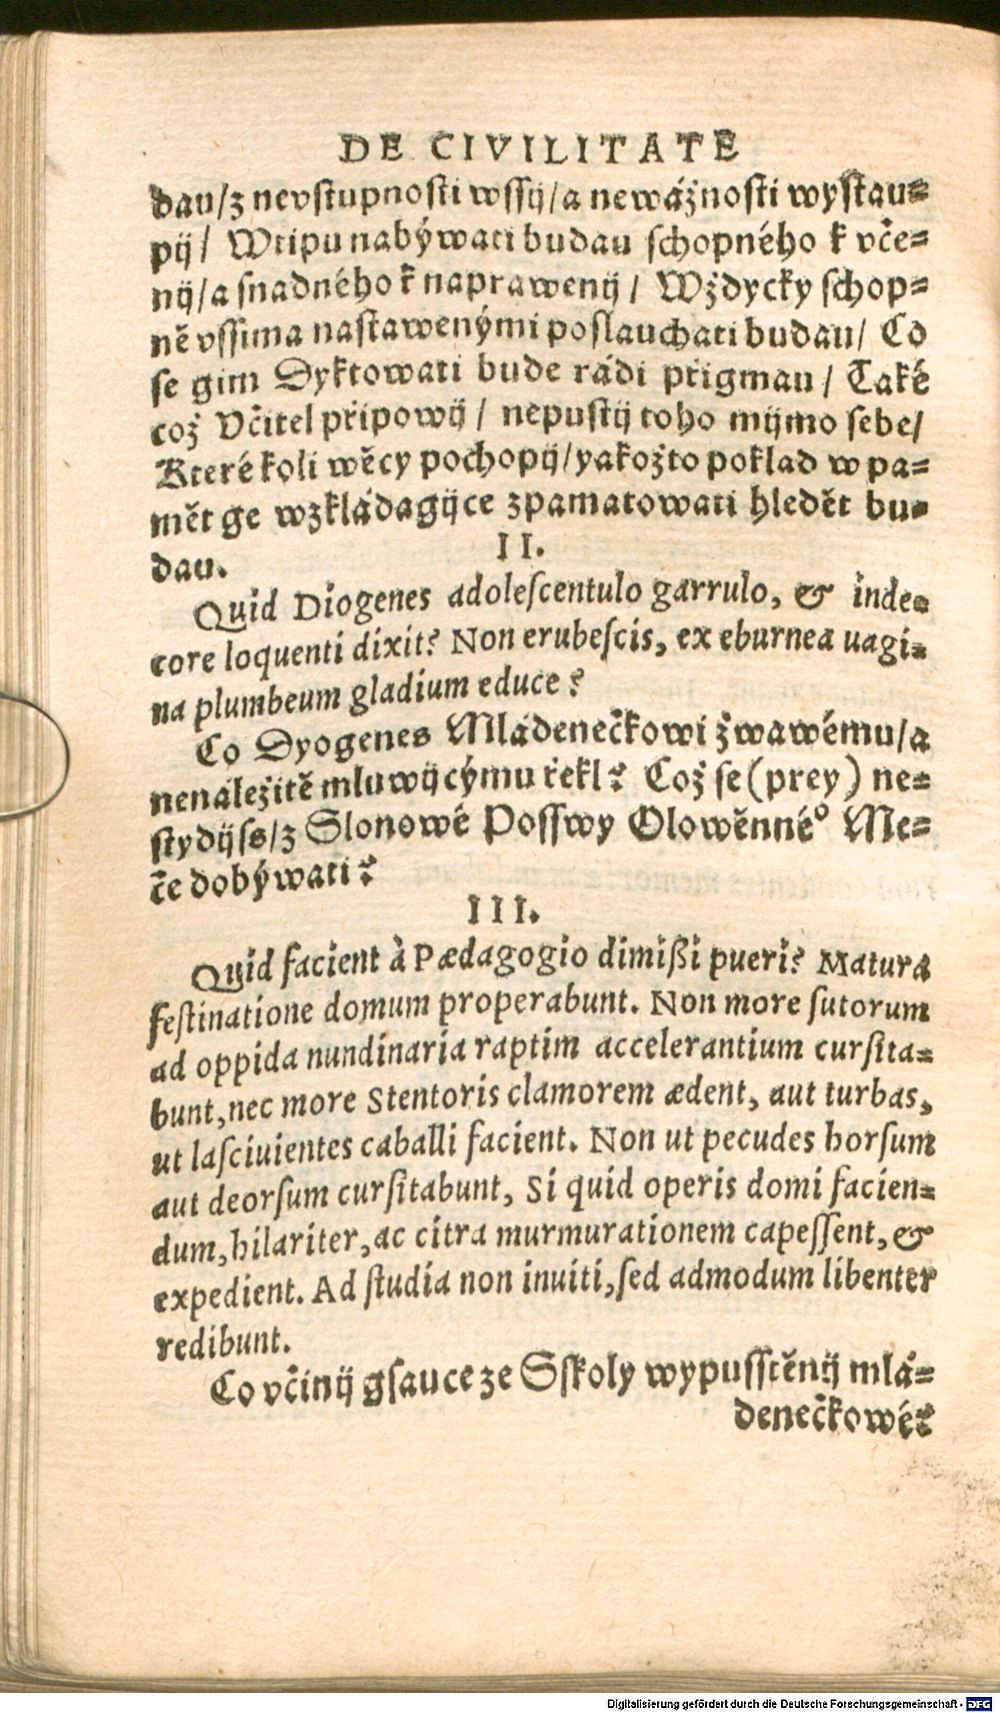 DE CIVILITATE
dau/z nevstupnosti wssij/a newážnosti wystau=
pij/ Wtipu nabýwati budau schopného k včе=
nij/a snadného k naprawenij/ Wždycky schop=
ně vssima nastawenými poslauchati budau/ Co
se gim Dyktowati bude rádi přigmau/ Také
což Včitel připowij/ nepustij toho mijmo sebe/
Které koli wěcy pochopij/yakožto poklad w pa=
mět ge wzkládagijce zpamatowati hledět bu=
dau.
II.
Quid Diogenes adolescentulo garrulo, & inde=
core loquenti dixit? Non erubescis, ex eburnea uagi=
na plumbeum gladium educe?
Co Dyogenes Mládenečkowi žwawému/a
nenáležitě mluwijcýmu řekl? Což se (prey) ne=
stydijss/z Slonowé Posswy Olowěnnéº Me=
če dobýwati?
III.
Quid facient à Pædagogio dimißi pueri? Matura
festinatione domum properabunt. Non more sutorum
ad oppida nundinaria raptim accelerantium cursita=
bunt, nec more Stentoris clamorem ædent, aut turbas,
ut lasciuientes caballi facient. Non ut pecudes horsum
aut deorsum cursitabunt, Si quid operis domi facien=
dum, hilariter, ac citra murmurationem capessent, &
expedient. Ad studia non inuiti, sed admodum libenter
redibunt.
Co včinij gsauce ze Sskoly wypusstěnij mlá=
denečkowé?
Digitalisierung gefördert durch die Deutsche Forschungsgemeinschaft - DFG